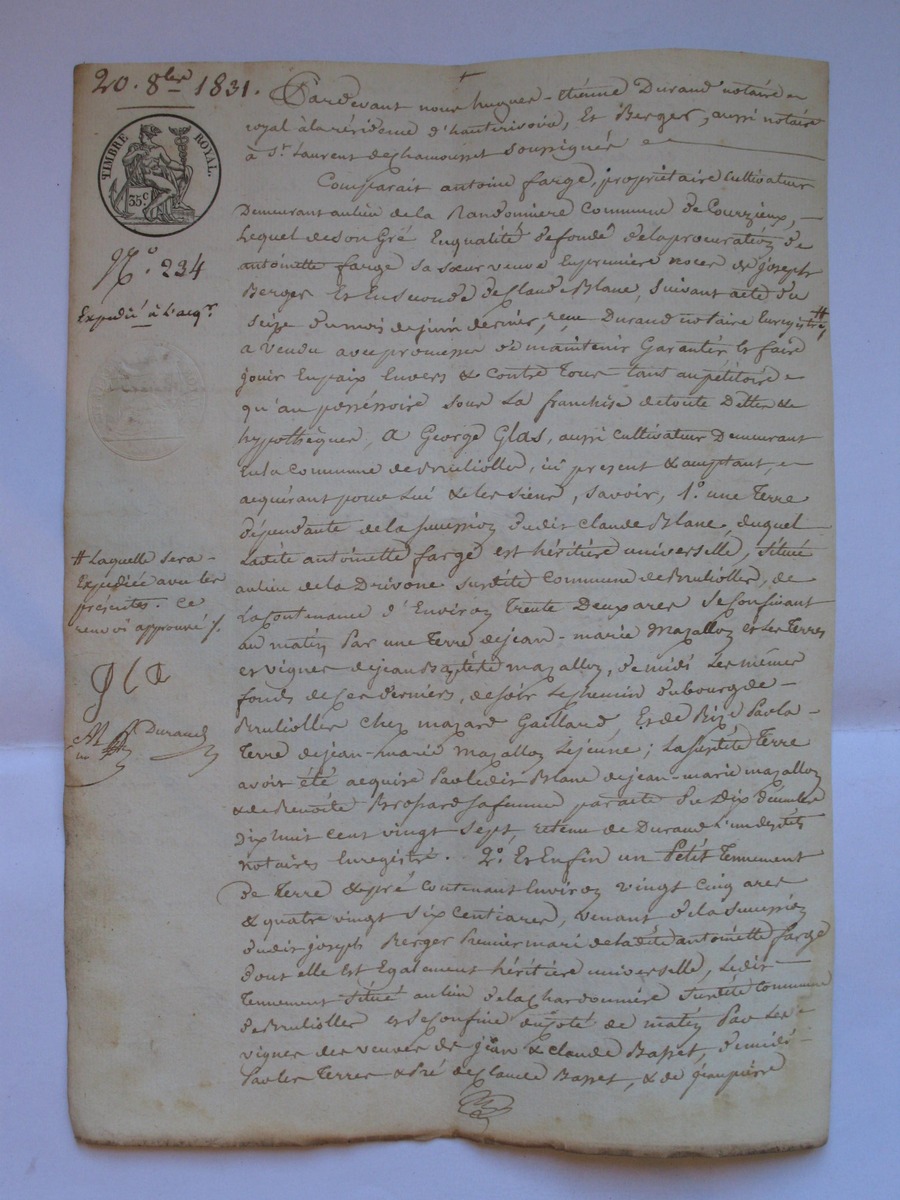 20. 8bre 1831.
TIMBRE ROYAL.
35 c
N.o 234
Expédié à l'acqr
Pardevant nous hugues-étienne Durand notaire
royal à la résidence d'hauterivoire, Et Berger, aussi notaire
à St Laurent de chamousset soussignés
Comparait antoine farge, propriétaire Cultivateur
Demeurant au lieu de la Randonniere Commune de Courzieux,
Lequel de son Gré En qualité de fondé de la procuration de
antoinette farge sa sœur veuve En premières noces de joseph
Berger Et En secondes de Claude Blanc, suivant acte du
seize du mois de juin dernier, reçu Durand notaire Enregistré #
a vendu avec promesse de maintenir Garantir, et faire
jouir En paix Envers & contre tous tant au pétitoire
qu'au possessoire sous la franchise de toute Dettes &
hypothèques, a George Glas, aussi Cultivateur Demeurant
En la Commune de Brulliolles, ici present & acceptant,
acquérant pour Lui & les siens, savoir, 1.o une Terre
dépendante de la succession dudit Claude Blanc, duquel
Ladite antoinette farge est héritière universelle, située
au lieu de la Drivone susdite Commune de Brulliolles, de
La Contenance d'Environ trente Deux ares se Confinant
au matin Par une Terre de jean-marie Mazallon et les Terres
et vignes de jean Baptiste mazallon, de midi Les mêmes
fonds de ces derniers, de soir Le chemin du bourg de
Brulliolles chez mazard Gaillard, Et de Bize Par la
Terre de jean-marie Mazallon Lejeune; La susdite Terre
avoir été acquise Par ledit Blanc de jean-marie mazallon
& de Benoite Brossard sa femme, par acte du Dix décembre
Dix huit cent vingt sept, retenu de Durand l'un desdits
notaires Enregistré. 2.o Et Enfin un Petit Tennement
De Terre & pré Contenant Environ vingt Cinq ares
& quatre vingt six Centiares, venant de la succession
dudit joseph Berger Premier mari de ladite antoinette farge
dont elle Est Egalement héritière universelle, Ledit
Tennement situé au lieu de la Chardonnière susdite Commune
de Brulliolles et se Confine du coté de matin Par Les
vignes des veuves de jean & Claude Basset, de midi
Par les Terres & Pré de Claude Basset, & de jean pierre
# Laquelle sera
Expédiée avec les
présentes. Ce
renvoi approuvé /.
Durand